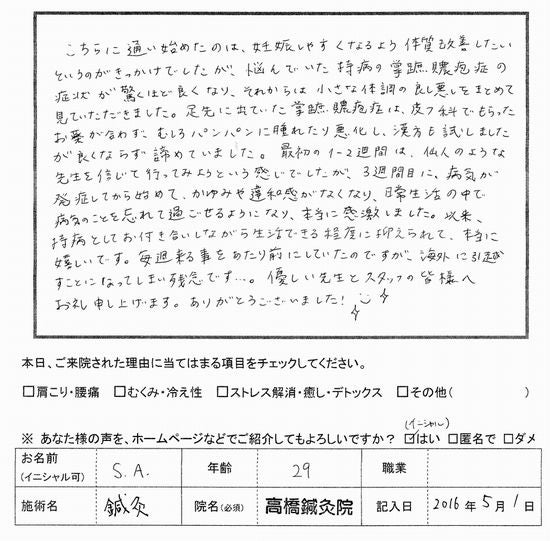 こちらに通い始めたのは、妊娠しやすくなるよう体質改善したい
というのがきっかけでしたが、悩んでいた持病の掌蹠膿疱症の
症状が驚くほど良くなり、それからは小さな体調の良し悪しをまとめて
見ていただきました。足先に出ていた掌蹠膿疱症は、皮フ科でもらった
お薬が合わず、むしろパンパンに腫れたり悪化し、漢方も試しました
が良くならず諦めていました。最初の1-2週間は、仙人のような
先生を信じて行ってみようという感じでしたが、3週間目に、病気が
発症してから始めて、かゆみや違和感がなくなり、日常生活の中で
病気のことを忘れて過ごせるようになり、本当に感激しました。以来、
持病としてお付き合いしながら生活できる程度に抑えられて、本当に
嬉しいです。毎週来る事をあたり前にしていたのですが、海外に引越
すことになってしまい残念です…。優しい先生とスタッフの皆様へ
お礼申し上げます。ありがとうございました!
本日、ご来院された理由に当てはまる項目をチェックしてください。
□肩こり・腰痛 □むくみ・冷え性 □ストレス解消・癒し・デトックス □その他( )
(イニシャル)
※ あなた様の声を、ホームページなどでご紹介してもよろしいですか? ☑はい □匿名で □ダメ
お名前(イニシャル可) S.A. 年齢 29 職業
施術名 鍼灸 院名(必須) 高橋鍼灸院 記入日 2016年5月1日